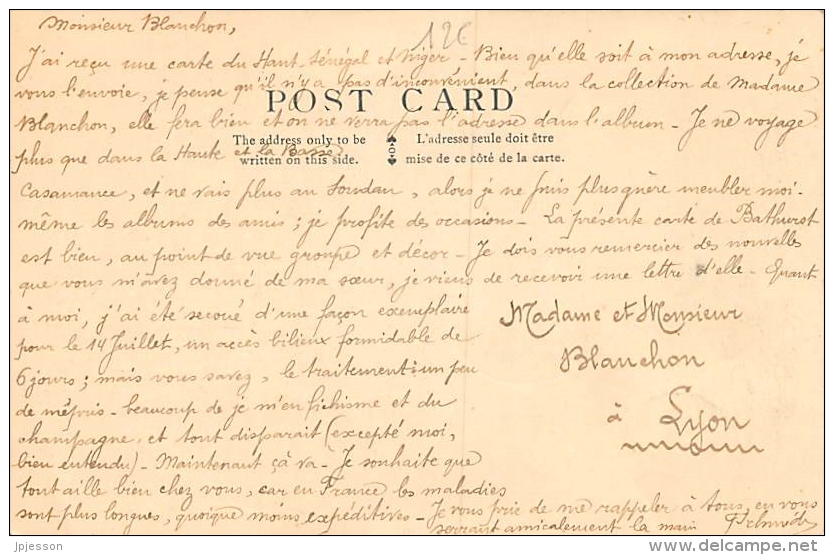 Monsieur Blanchon,
12€
J'ai reçu une carte du Haut-Sénégal et Niger - Bien qu'elle soit à mon adresse, je
vous l'envoie, je pense qu'il n'y a pas d'inconvénient, dans la collection de Madame
POST CARD
Blanchon, elle fera bien et on ne verra pas l'adresse dans l'album - Je ne voyage
The address only to be written on this side.
L'adresse seule doit être mise de ce côté de la carte.
plus que dans la Haute et la Basse
Casamance, et ne vais plus au Soudan, alors je ne puis plus guère meubler moi-
même les albums des amis; je profite des occasions - La présente carte de Bathurst
est bien, au point de vue groupe et décor - Je dois vous remercier des nouvelles
que vous m'avez donné de ma sœur, je viens de recevoir une lettre d'elle - Quant
à moi, j'ai été secoué d'une façon exemplaire
pour le 14 Juillet, un accès bilieux formidable de
6 jours; mais vous savez, le traitement: un peu
de mépris - beaucoup de je m'en fichisme et du
champagne, et tout disparait (excepté moi,
bien entendu) - Maintenant çà va - Je souhaite que
tout aille bien chez vous, car en France, les maladies
sont plus longues, quoique moins expéditives - Je vous prie de me rappeler à tous, en vous
serrant amicalement la main
Madame et Monsieur
Blanchon
à
Lyon
jpjesson
delcampe.net